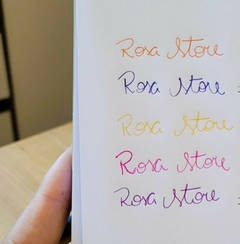 Rosa Store
Rosa Store
Rosa Store
Rosa Store
Rosa Store